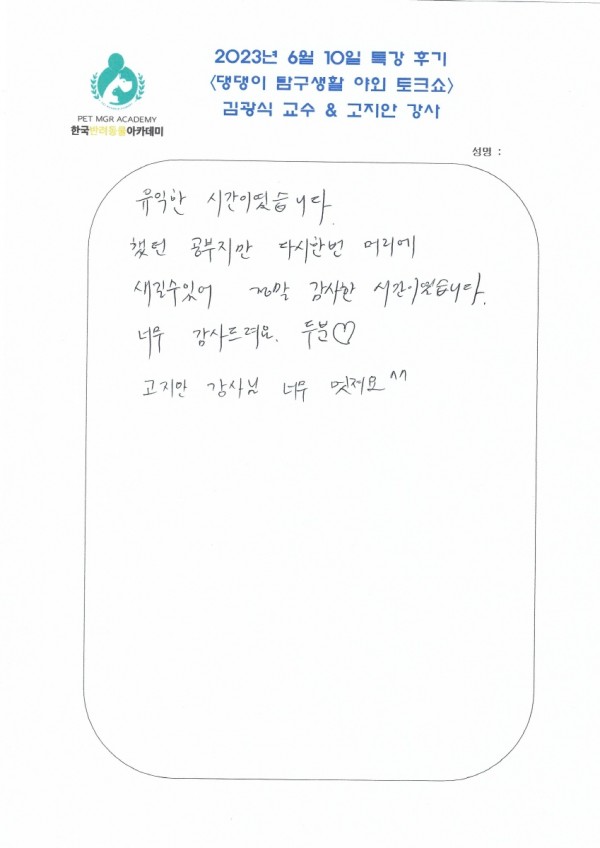 2023년 6월 10일 특강 후기
<댕댕이 탐구생활 야외 토크쇼>
김광식 교수 & 고지안 강사
PET MGR ACADEMY
한국반려동물아카데미
성명 :
유익한 시간이였습니다.
했던 공부지만 다시한번 머리에
새길수있어 정말 감사한 시간이였습니다.
너무 감사드려요. 두분♡
고지안 강사님 너무 멋져요^^